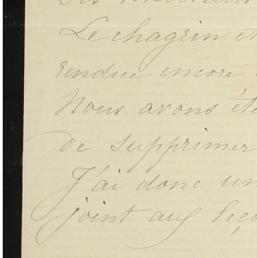 Le chagrin et
rendue encore
Nous avons été
de supprimer
J'ai donc un
joint aux leço